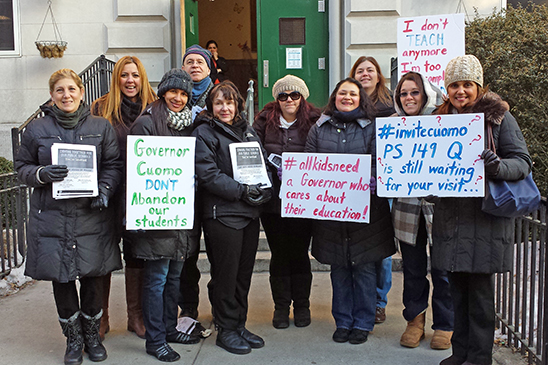 Governor
Cuomo
DON'T
Abandon
our
students
#allkidsneed
a Governor who
cares about
their education!
I don't
TEACH
anymore
I'm too
#invitecuomo
PS 149 Q
is still waiting
for your visit...